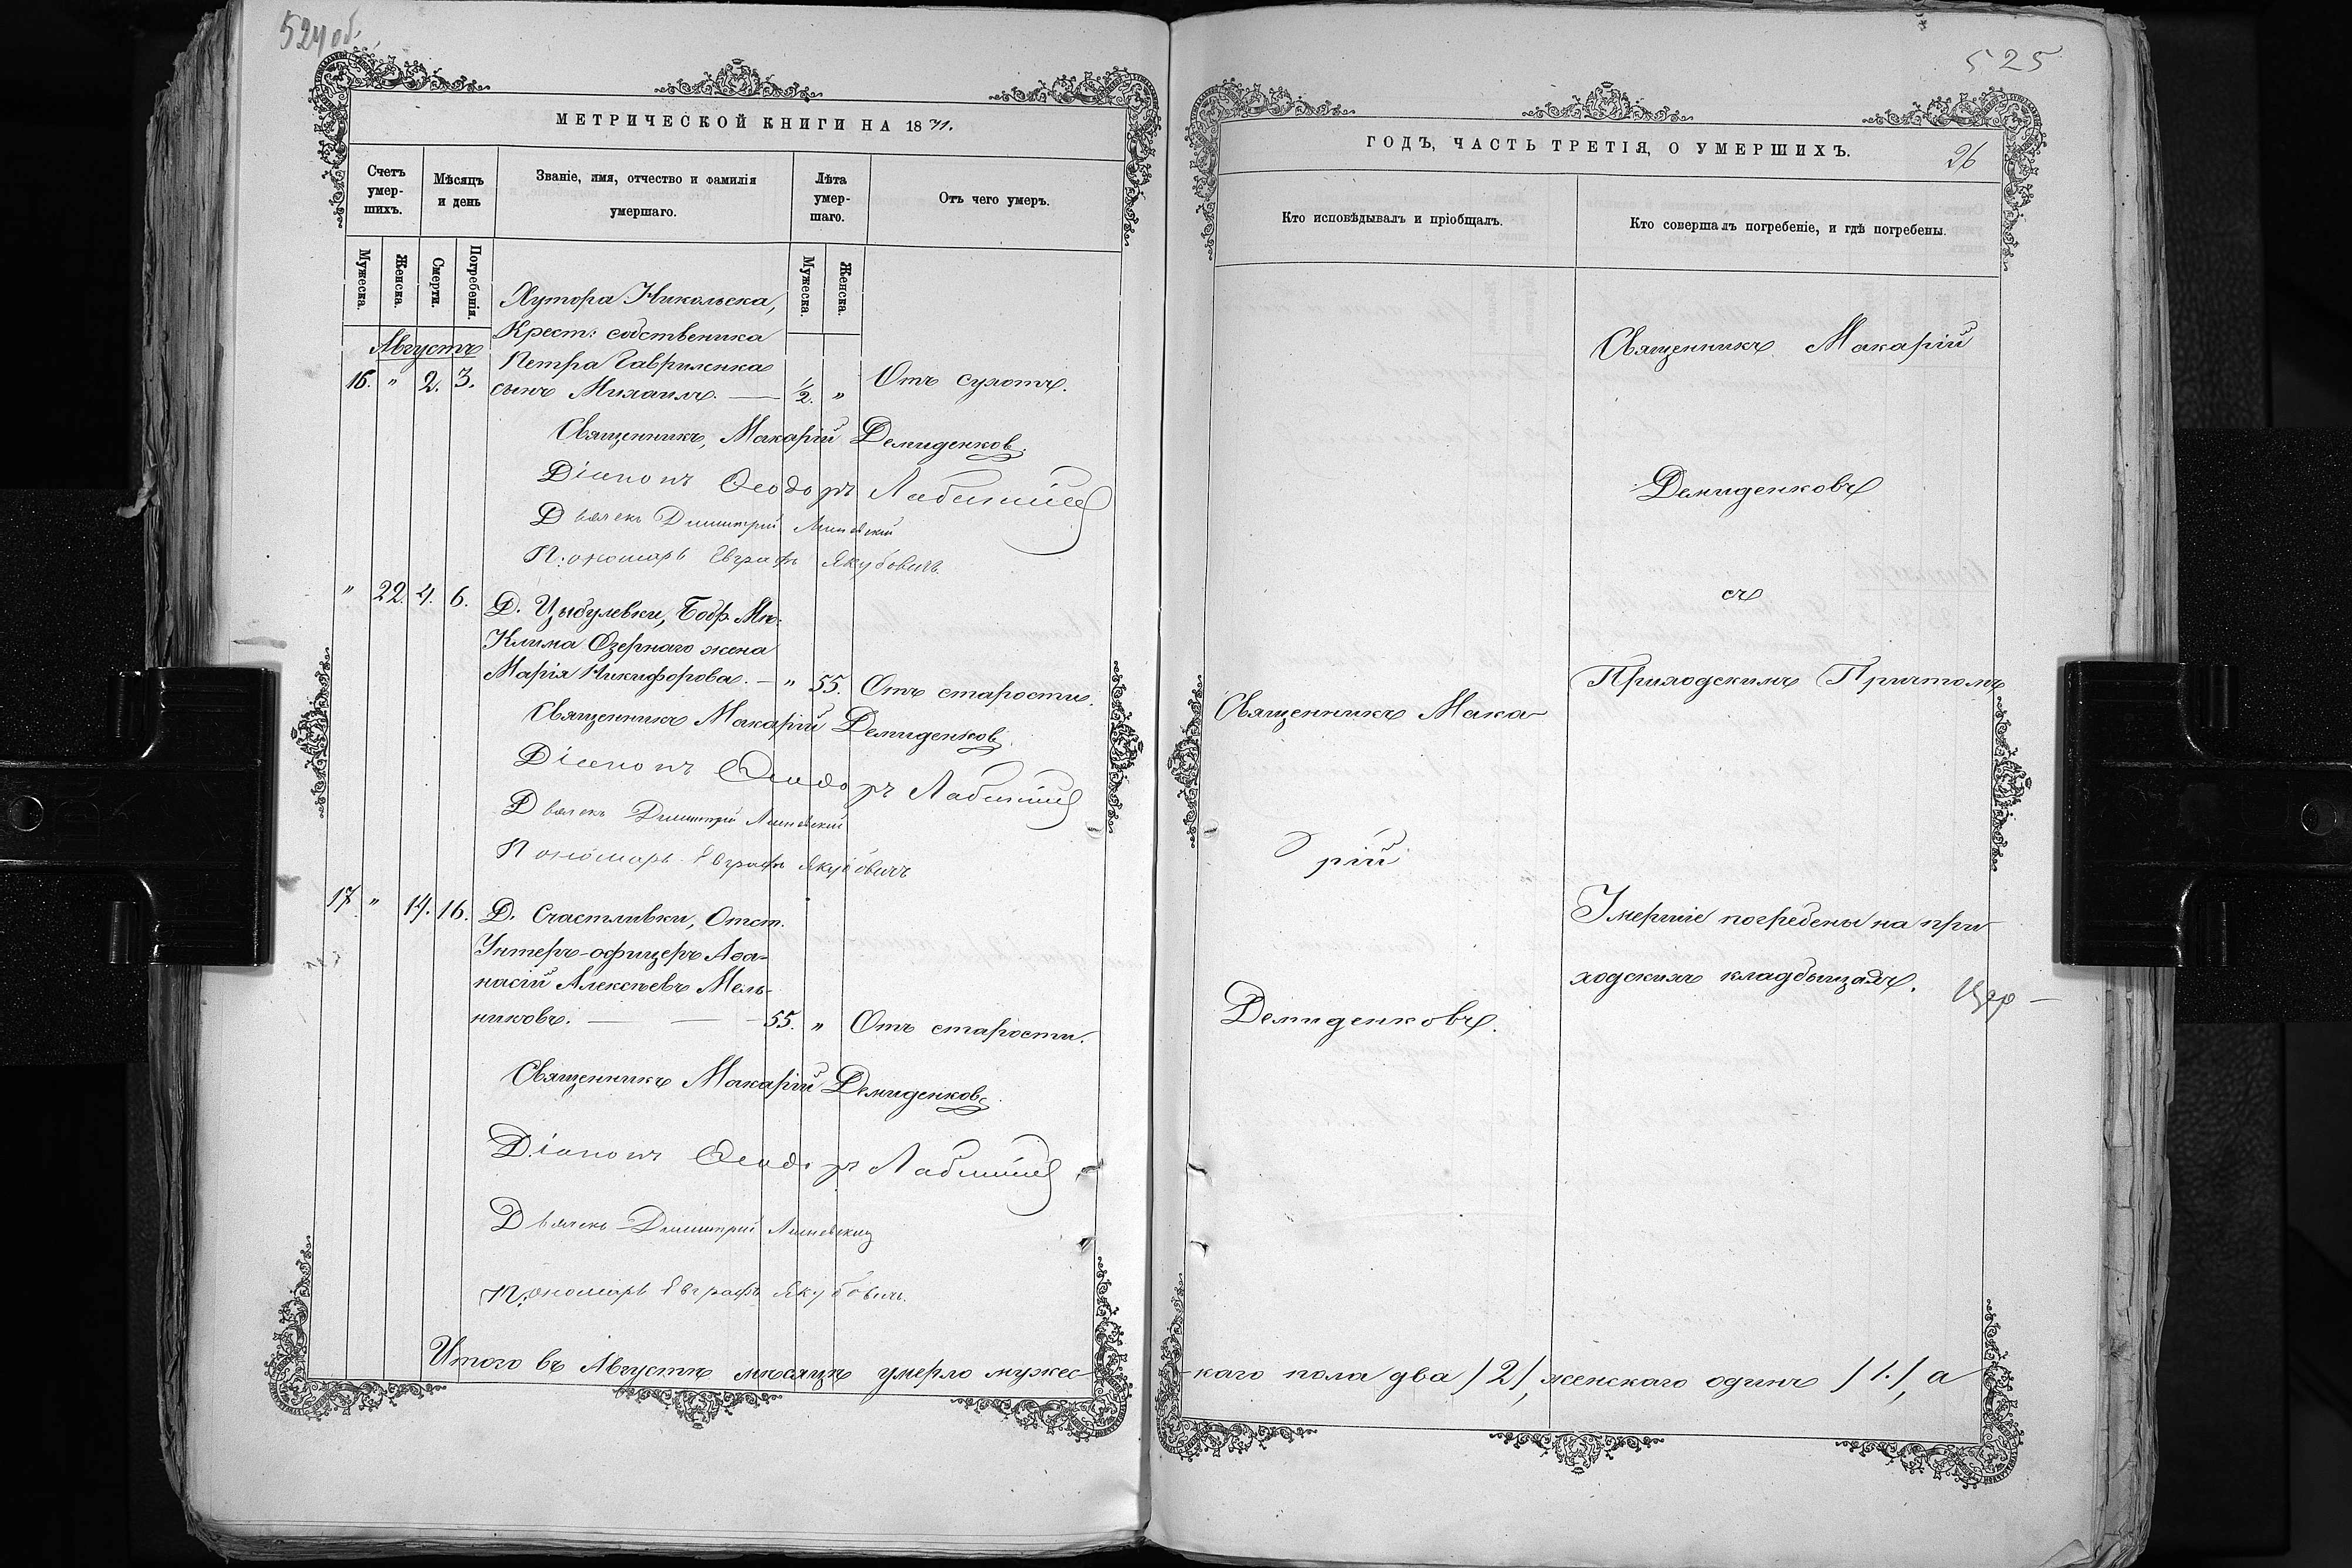 524 об.
МЕТРИЧЕСКОЙ КНИГИ НА 1871.
Счетъ умер-шихъ.
Мѣсяцъ и день
Званіе, имя, отчество и фамилія умершаго.
Лѣта умер-шаго.
Отъ чего умеръ.
Мужеска.
Женска.
Смерти.
Погребенія.
Мужеска.
Женска.
Августъ
Хутора Никольска,
Крест: собственика
Петра Гавриленка
16. " 2. 3. сынъ Михаилъ. — 1/2. " Отъ сухотъ.
Священникъ, Макарій Демиденковъ.
Діаконъ Ѳеодоръ
Дьячекъ Димитрій
Пономарь Евграфъ Якубовичъ.
" 22. 4. 6. Д. Цыбулевки,
Клима Озернаго жена
Марія Никифорова. — " 55. Отъ старости.
Священникъ Макарій Демиденковъ.
Діаконъ Ѳеодоръ
Дьячекъ Димитрій
Пономарь Евграфъ Якубовичъ
17. " 14. 16. Д. Счастливки, Отст.
Унтеръ-офицеръ Аѳа-
насій Алексѣевъ Мель-
никовъ. — — 55. " Отъ старости.
Священникъ Макарій Демиденковъ.
Діаконъ Ѳеодоръ
Дьячекъ Димитрій
Пономарь Евграфъ Якубовичъ.
Итого въ Августѣ мѣсяцѣ умерло мужес-
525
ГОДЪ, ЧАСТЬ ТРЕТІЯ, О УМЕРШИХЪ.
26
Кто исповѣдывалъ и пріобщалъ.
Кто совершалъ погребеніе, и гдѣ погребены.
Священникъ Мака-
рій
Демиденковъ.
Священникъ Макарій
Демиденковъ
съ
Приходскимъ Причтомъ
Умершіе погребены на при-
ходскихъ кладбищахъ.
каго пола два /2/, женскаго одинъ /1./, а